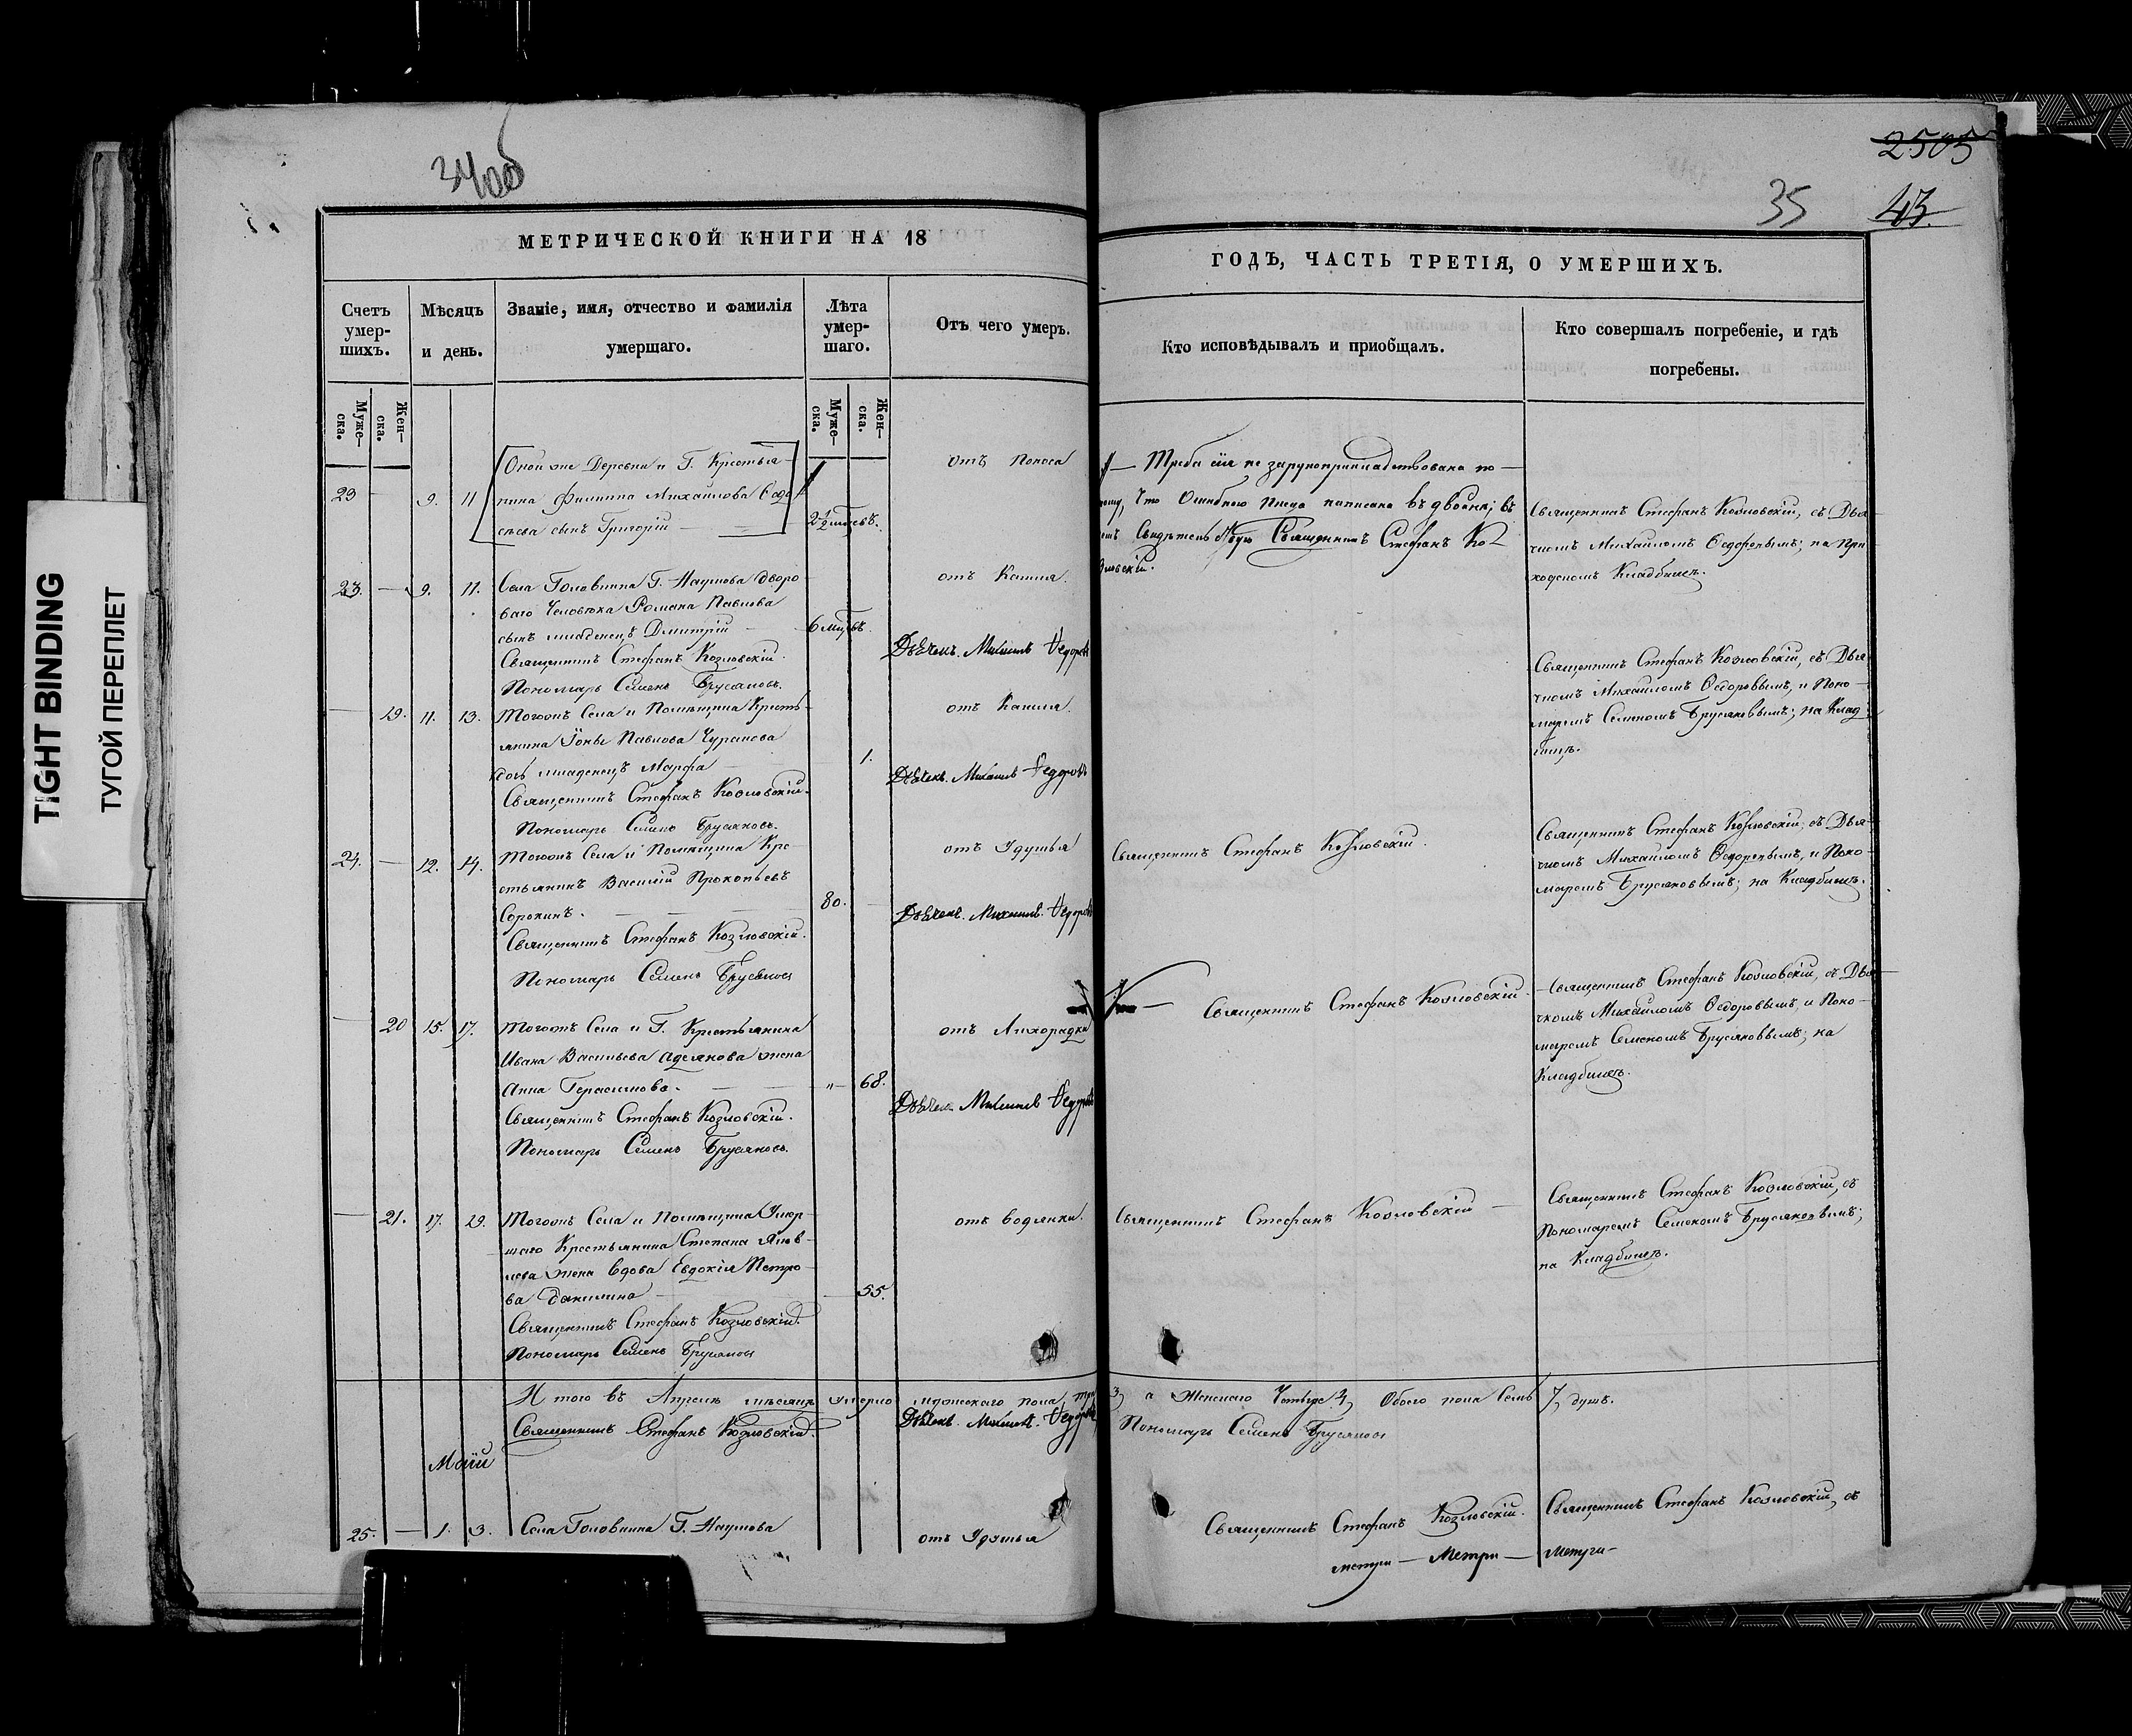 TIGHT BINDING
ТУГОЙ ПЕРЕПЛЕТ
34об
МЕТРИЧЕСКОЙ КНИГИ НА 18
Счетъ умер-шихъ.
Мѣсяцъ и день.
Званіе, имя, отчество и фамилія умершаго.
Лѣта умер-шаго.
Отъ чего умеръ.
Муже-ска.
Жен-ска.
Муже-ска.
Жен-ска.
Оной же Деревни и Г. Крестья-
29 — 9. 11 нина Филиппа Михайлова
сына Григорій
отъ Поноса
23. — 9. 11. Села Головнина Г. Наумова дворо-
ваго Человѣка Романа Павлова
сынъ младенецъ Дмитрій — 6 мцовъ.
отъ Кашля.
Священникъ Стефанъ Козловскій.
Пономарь Семенъ Брусяновъ.
Дьячекъ. Михаилъ Федоровъ
— 19. 11. 13. Тогожъ Села и Помѣщика Кресть-
янина Іоны Павлова Чуранова
дочь младенецъ Марфа — 1.
отъ Кашля.
Священникъ Стефанъ Козловскій.
Пономарь Семенъ Брусяновъ.
Дьячекъ. Михаилъ Федоровъ
24. — 12. 14. Тогожъ Села и Помѣщика Кре-
стьянинъ Василій Прокопьевъ
Сорокинъ. — 80.
отъ Удушья
Священникъ Стефанъ Козловскій.
Пономарь Семенъ Брусяновъ
Дьячекъ. Михаилъ. Федоровъ
— 20 15. 17. Тогожъ Села и Г. Крестьянина
Ивана Васильева жена
Анна Герасимова. — 68.
отъ Лихорадки
Священникъ Стефанъ Козловскій.
Пономарь Семенъ Брусяновъ.
Дьячекъ Михаилъ Федоровъ
— 21. 17. 19. Тогожъ Села и Помѣщика Умер-
шаго Крестьянина Степана Яков-
лева жена вдова Евдокія Петро-
ва Данилина — 55.
отъ водянки.
Священникъ Стефанъ Козловскій.
Пономарь Семенъ Брусяновъ
Итого въ Апрелѣ мѣсяцѣ умерло мужескаго пола три
Священникъ Стефанъ Козловскій.
Дьячекъ. Михаилъ. Федоровъ
Маій
25. — 1. 3. Села Головнина Г. Наумова
отъ Удушья
2505
35 43.
ГОДЪ, ЧАСТЬ ТРЕТІЯ, О УМЕРШИХЪ.
Кто исповѣдывалъ и приобщалъ.
Кто совершалъ погребеніе, и гдѣ погребены.
— Треба сія не зарукоприкладствована по-
тому, что Ошибкою писца написана въ двойнѣ; въ
Свидѣтельствую Священникъ Стефанъ Ко-
зловскій.
Священникъ Стефанъ Козловскій, съ Дья-
чкомъ Михаиломъ Ѳедоровымъ; на При-
ходскомъ Кладбищѣ.
Священникъ Стефанъ Козловскій, съ Дья-
чкомъ Михаиломъ Ѳедоровымъ, и Поно-
маремъ Семеномъ Брусяновымъ; на Клад-
бищѣ.
Священникъ Стефанъ Козловскій.
Священникъ Стефанъ Козловскій, съ Дья-
чкомъ Михаиломъ Ѳедоровымъ, и Поно-
маремъ Брусяновымъ; на Кладбищѣ.
— Священникъ Стефанъ Козловскій.
Священникъ Стефанъ Козловскій, съ Дья-
чкомъ Михаиломъ Ѳедоровымъ, и Поно-
маремъ Семеномъ Брусяновымъ; на
Кладбищѣ.
Священникъ Стефанъ Козловскій —
Священникъ Стефанъ Козловскій, съ
Пономаремъ Семеномъ Брусяновымъ;
на Кладбищѣ.
3, а Женскаго Четыре 4, Обоего пола Семь 7, душъ.
Пономарь Семенъ Брусяновъ
Священникъ Стефанъ Козловскій.
Священникъ Стефанъ Козловскій, съ
метри — Метри — Метри —